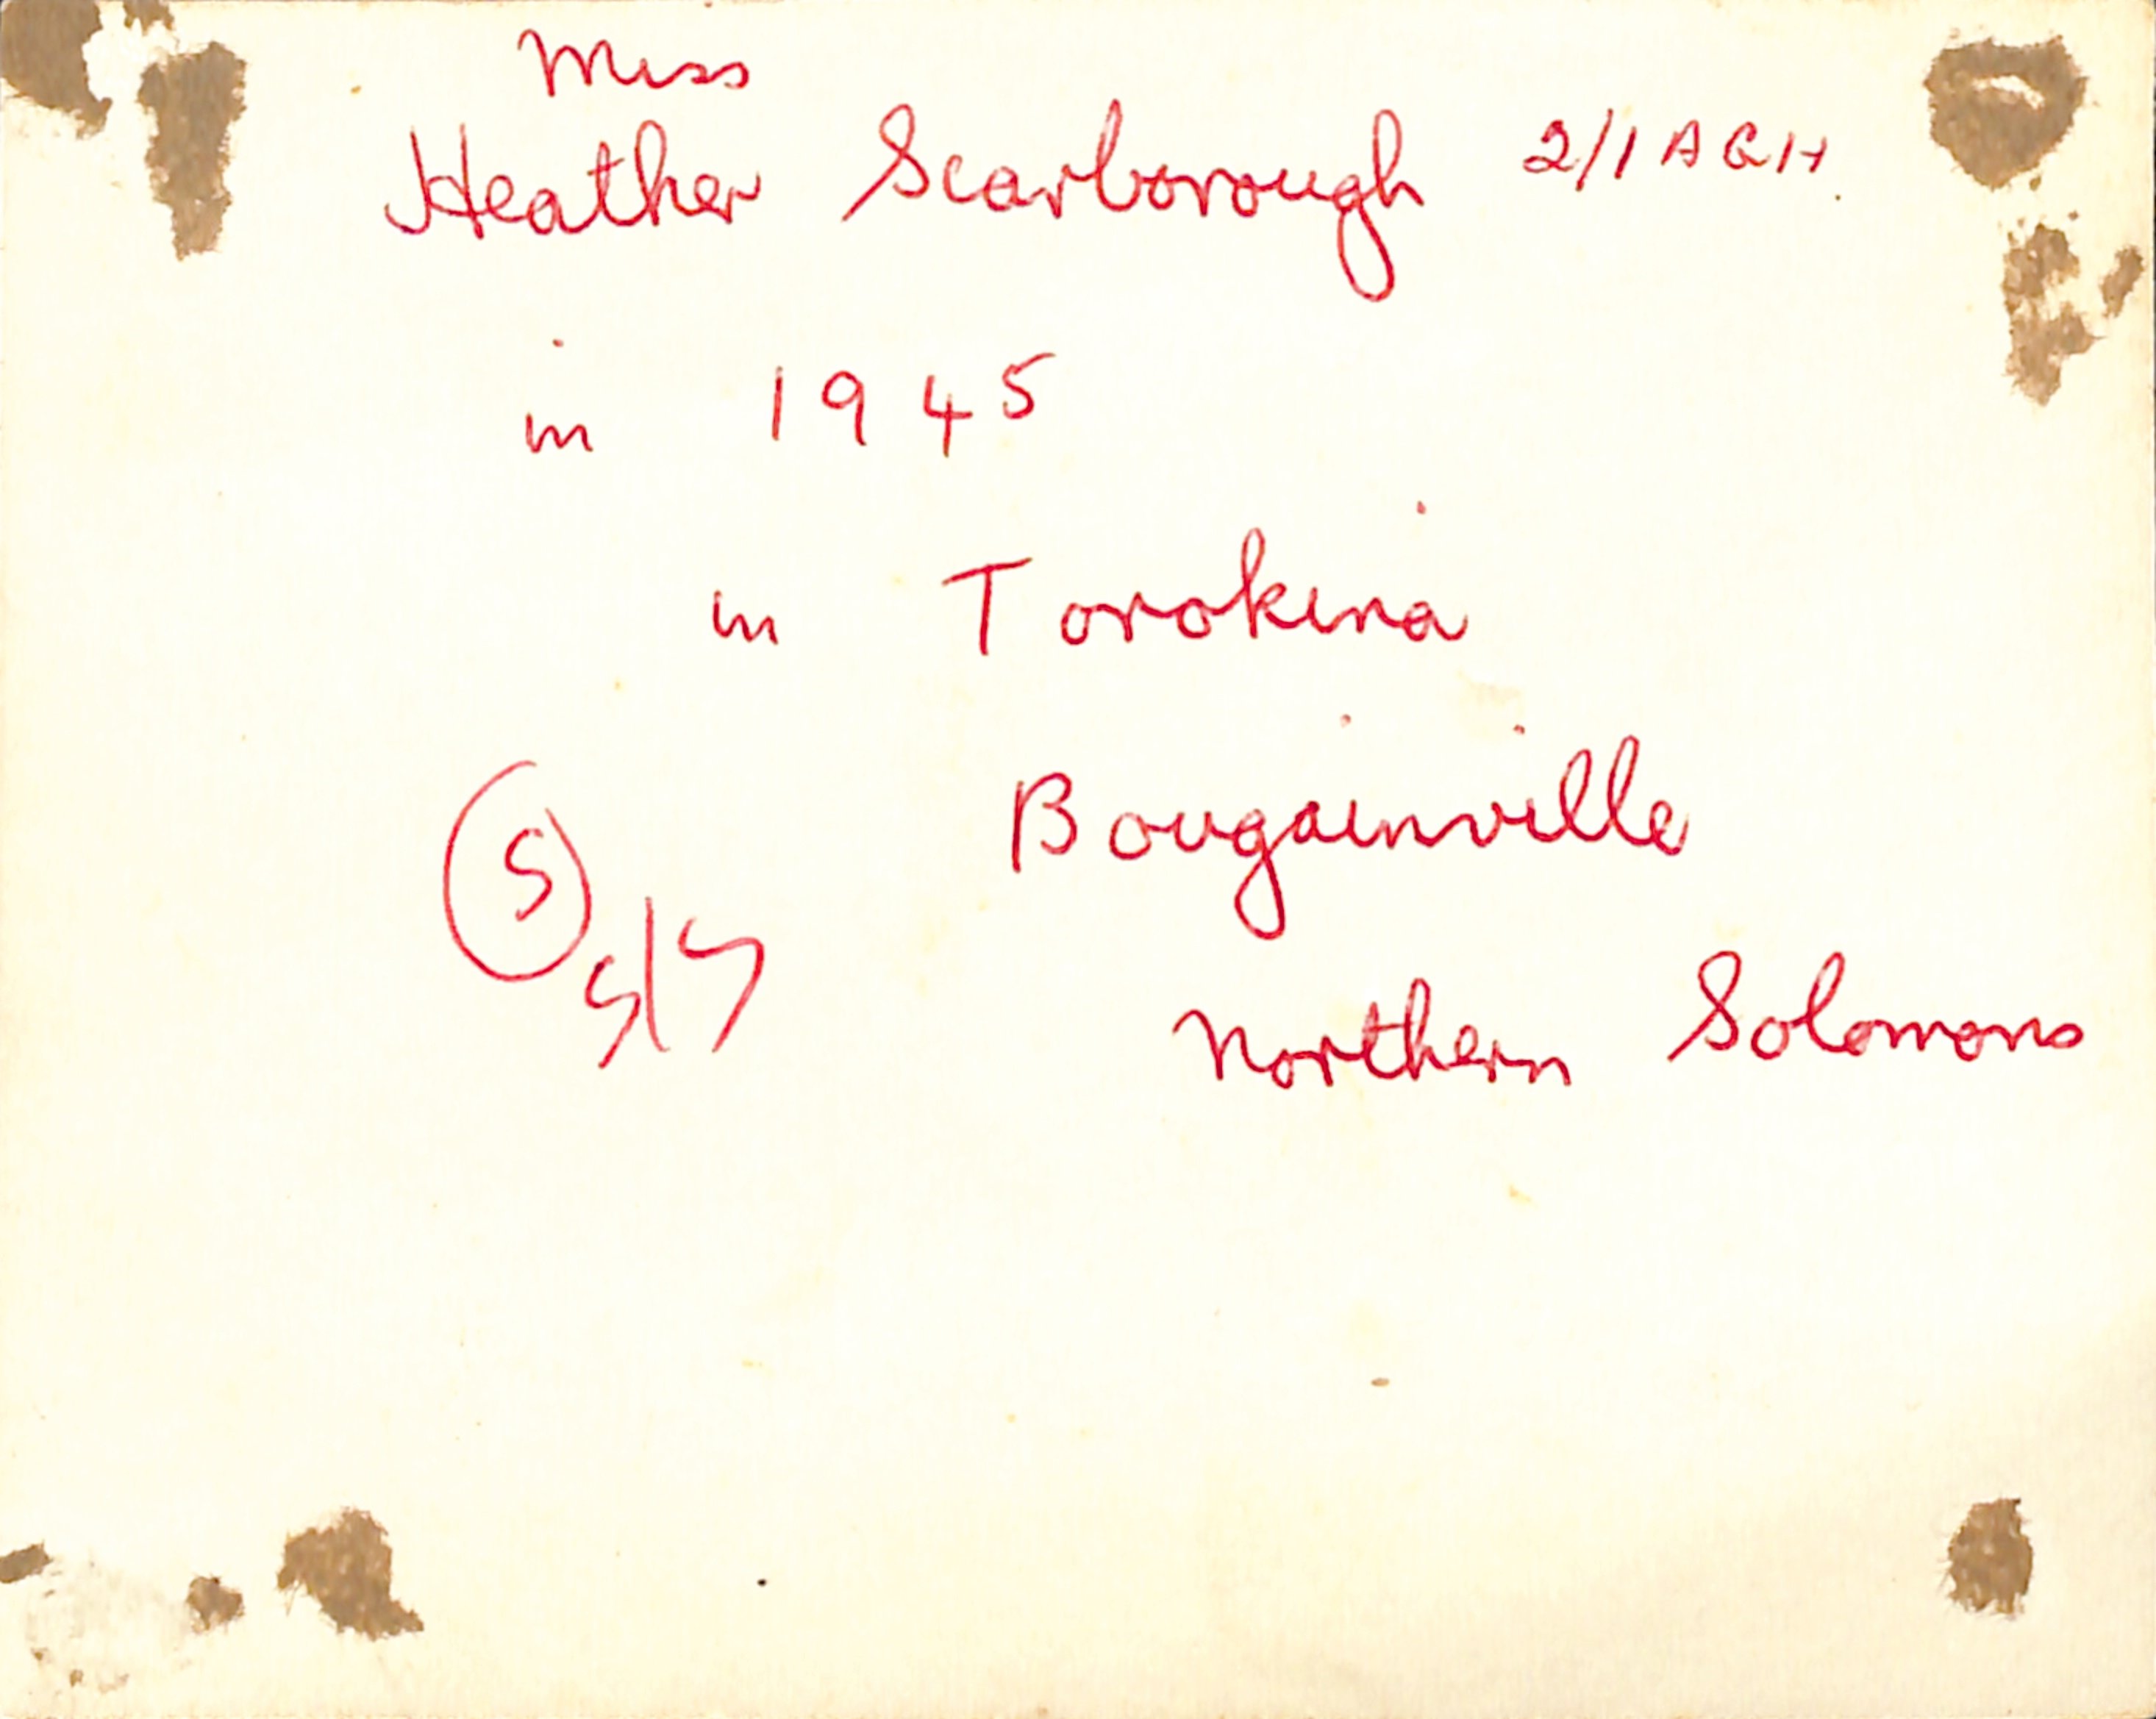 Miss
Heather Scarborough 2/1 AGH.
in 1945
in Torokina
Bougainville
S
Northern Solomons